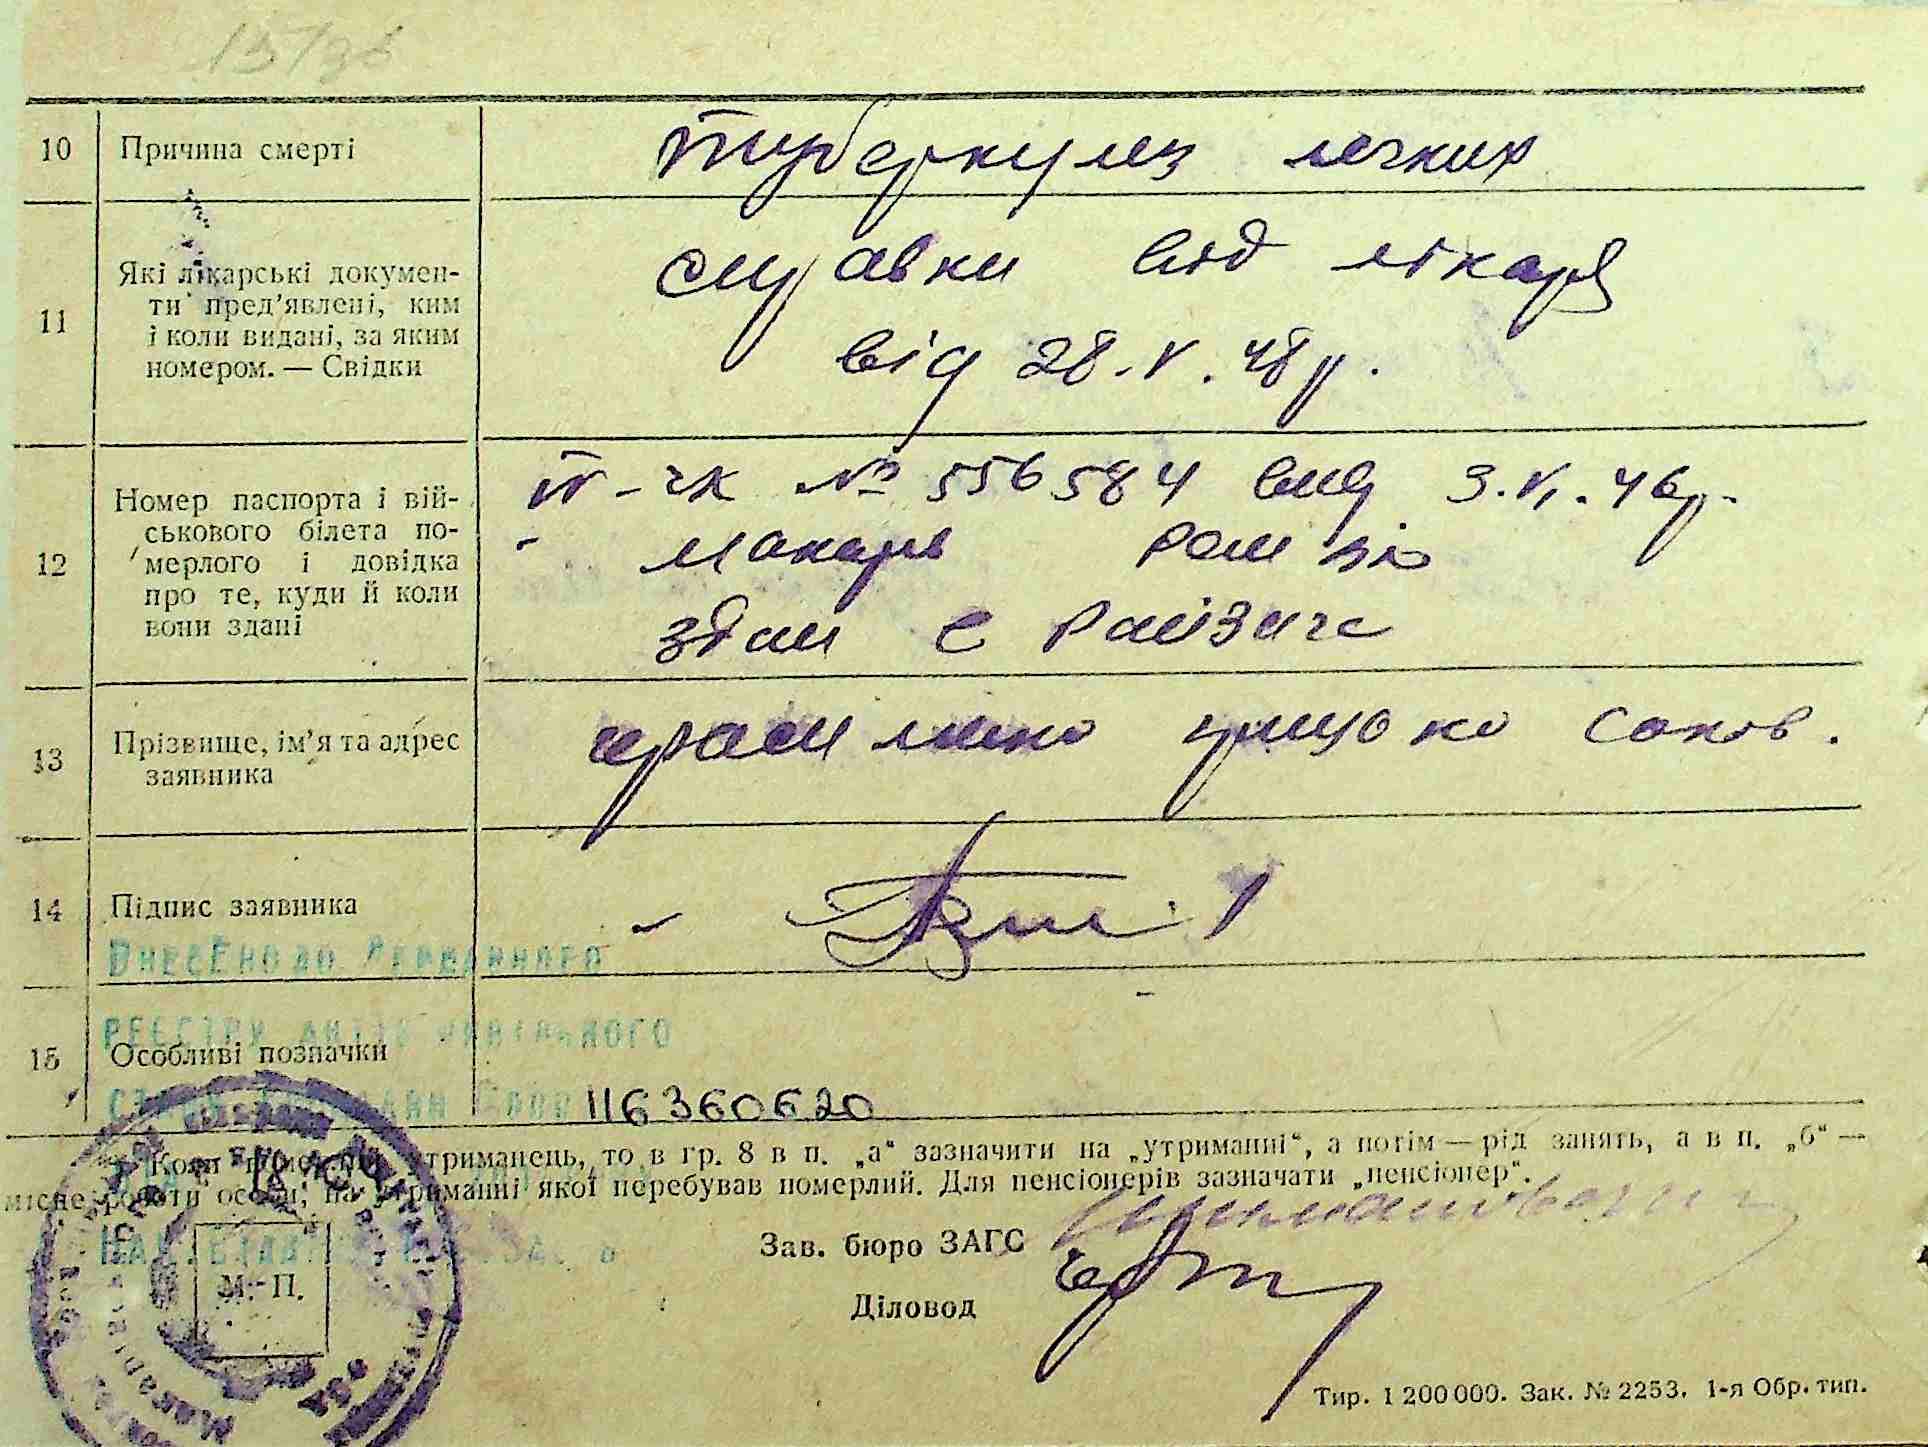 15/38
10 Причина смерті туберкулез легких
11 Які лікарські документи пред'явлені, ким і коли видані, за яким номером. — Свідки
справки від лікаря
від 28.V.48р.
12 Номер паспорта і військового білета померлого і довідка про те, куди й коли вони здані
№ 556584 вид 3.VI.46р.
Макарів
здан
13 Прізвище, ім'я та адрес заявника
Герасименко Грицько
14 Підпис заявника
Внесено до Державного
реєстру актів цивільного
15 Особливі позначки
116360620
утриманець, то в гр. 8 в п. „а“ зазначити на „утриманні“, а потім — рід занять, а в п. „б“ —
місце роботи особи, на утриманні якої перебував померлий. Для пенсіонерів зазначати „пенсіонер“.
Зав. бюро ЗАГС
М. П.
Діловод
Тир. 1 200 000. Зак. № 2253. 1-я Обр. тип.